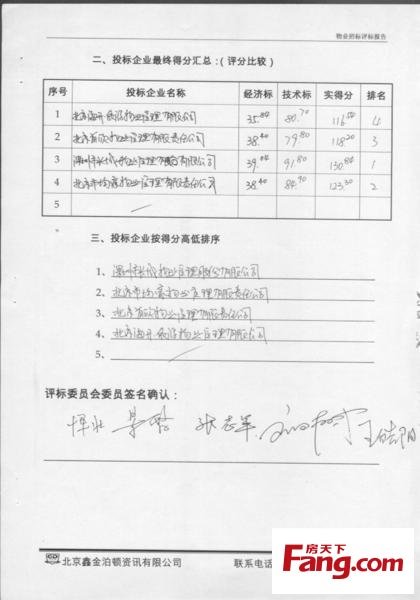 物业招标评标报告
二、投标企业最终得分汇总：(评分比较)
序号 投标企业名称 经济标 技术标 实得分 排名
1 物业管理有限公司 35.84 80.70 116.54 4
2 物业管理有限责任公司 38.40 79.80 118.20 3
3 深圳市长城物业管理股份有限公司 39.04 91.80 130.84 1
4 北京市均豪物业管理有限责任公司 38.40 84.90 123.30 2
5
三、投标企业按得分高低排序
1、深圳市长城物业管理股份有限公司
2、北京市均豪物业管理有限责任公司
3、物业管理有限责任公司
4、物业管理有限公司
5、
评标委员会委员签名确认：
张志军 王皓阳
北京鑫金泊顿资讯有限公司 联系电话
房天下
Fang.com